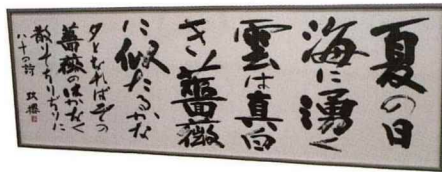 夏の日
海に湧く
雲は真白
き薔薇
に似たるかな
夕となればその
薔薇のはかなく
散りてちりぢりに
八十の詩